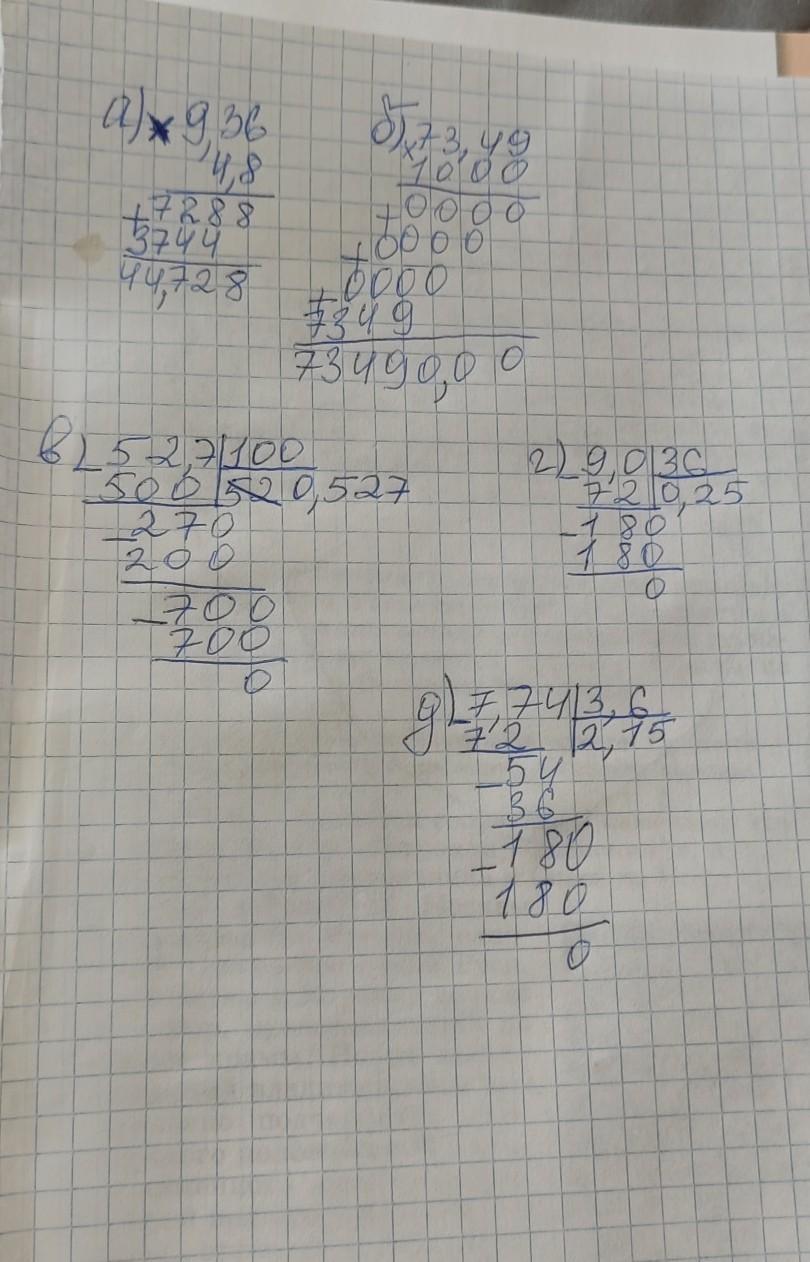 а) × 9,36
4,8
+ 7288
3744
44,728
б) × 73,49
1000
+ 0000
+ 0000
+ 0000
7349
73490,00
в) - 52,7 | 100
500 | 52 0,527
- 270
200
- 700
700
0
г) - 9,0 | 36
72 | 0,25
- 180
180
0
д) - 7,74 | 3,6
72 | 2,15
- 54
36
- 180
180
0